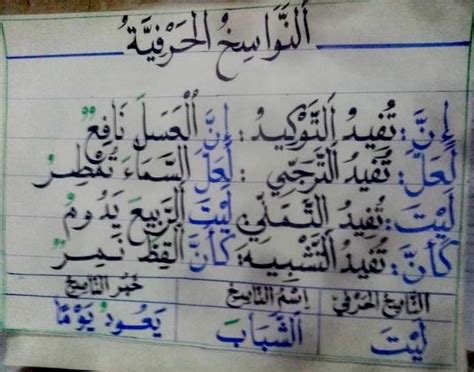 اَلنَّوَاسِخُ الْحَرْفِيَّةُ
إِنَّ : تُفِيدُ التَّوْكِيدَ : إِنَّ الْعَسَلَ نَافِعٌ
لَعَلَّ : تُفِيدُ التَّرَجِّي : لَعَلَّ السَّمَاءَ تُمْطِرُ
لَيْتَ : تُفِيدُ التَّمَنِّي : لَيْتَ الرَّبِيعَ يَدُومُ
كَأَنَّ : تُفِيدُ التَّشْبِيهَ : كَأَنَّ الْقِطَّ نَمِرٌ
النَّاسِخُ الْحَرْفِيُّ اِسْمُ النَّاسِخِ خَبَرُ النَّاسِخِ
لَيْتَ الشَّبَابَ يَعُودُ يَوْمًا